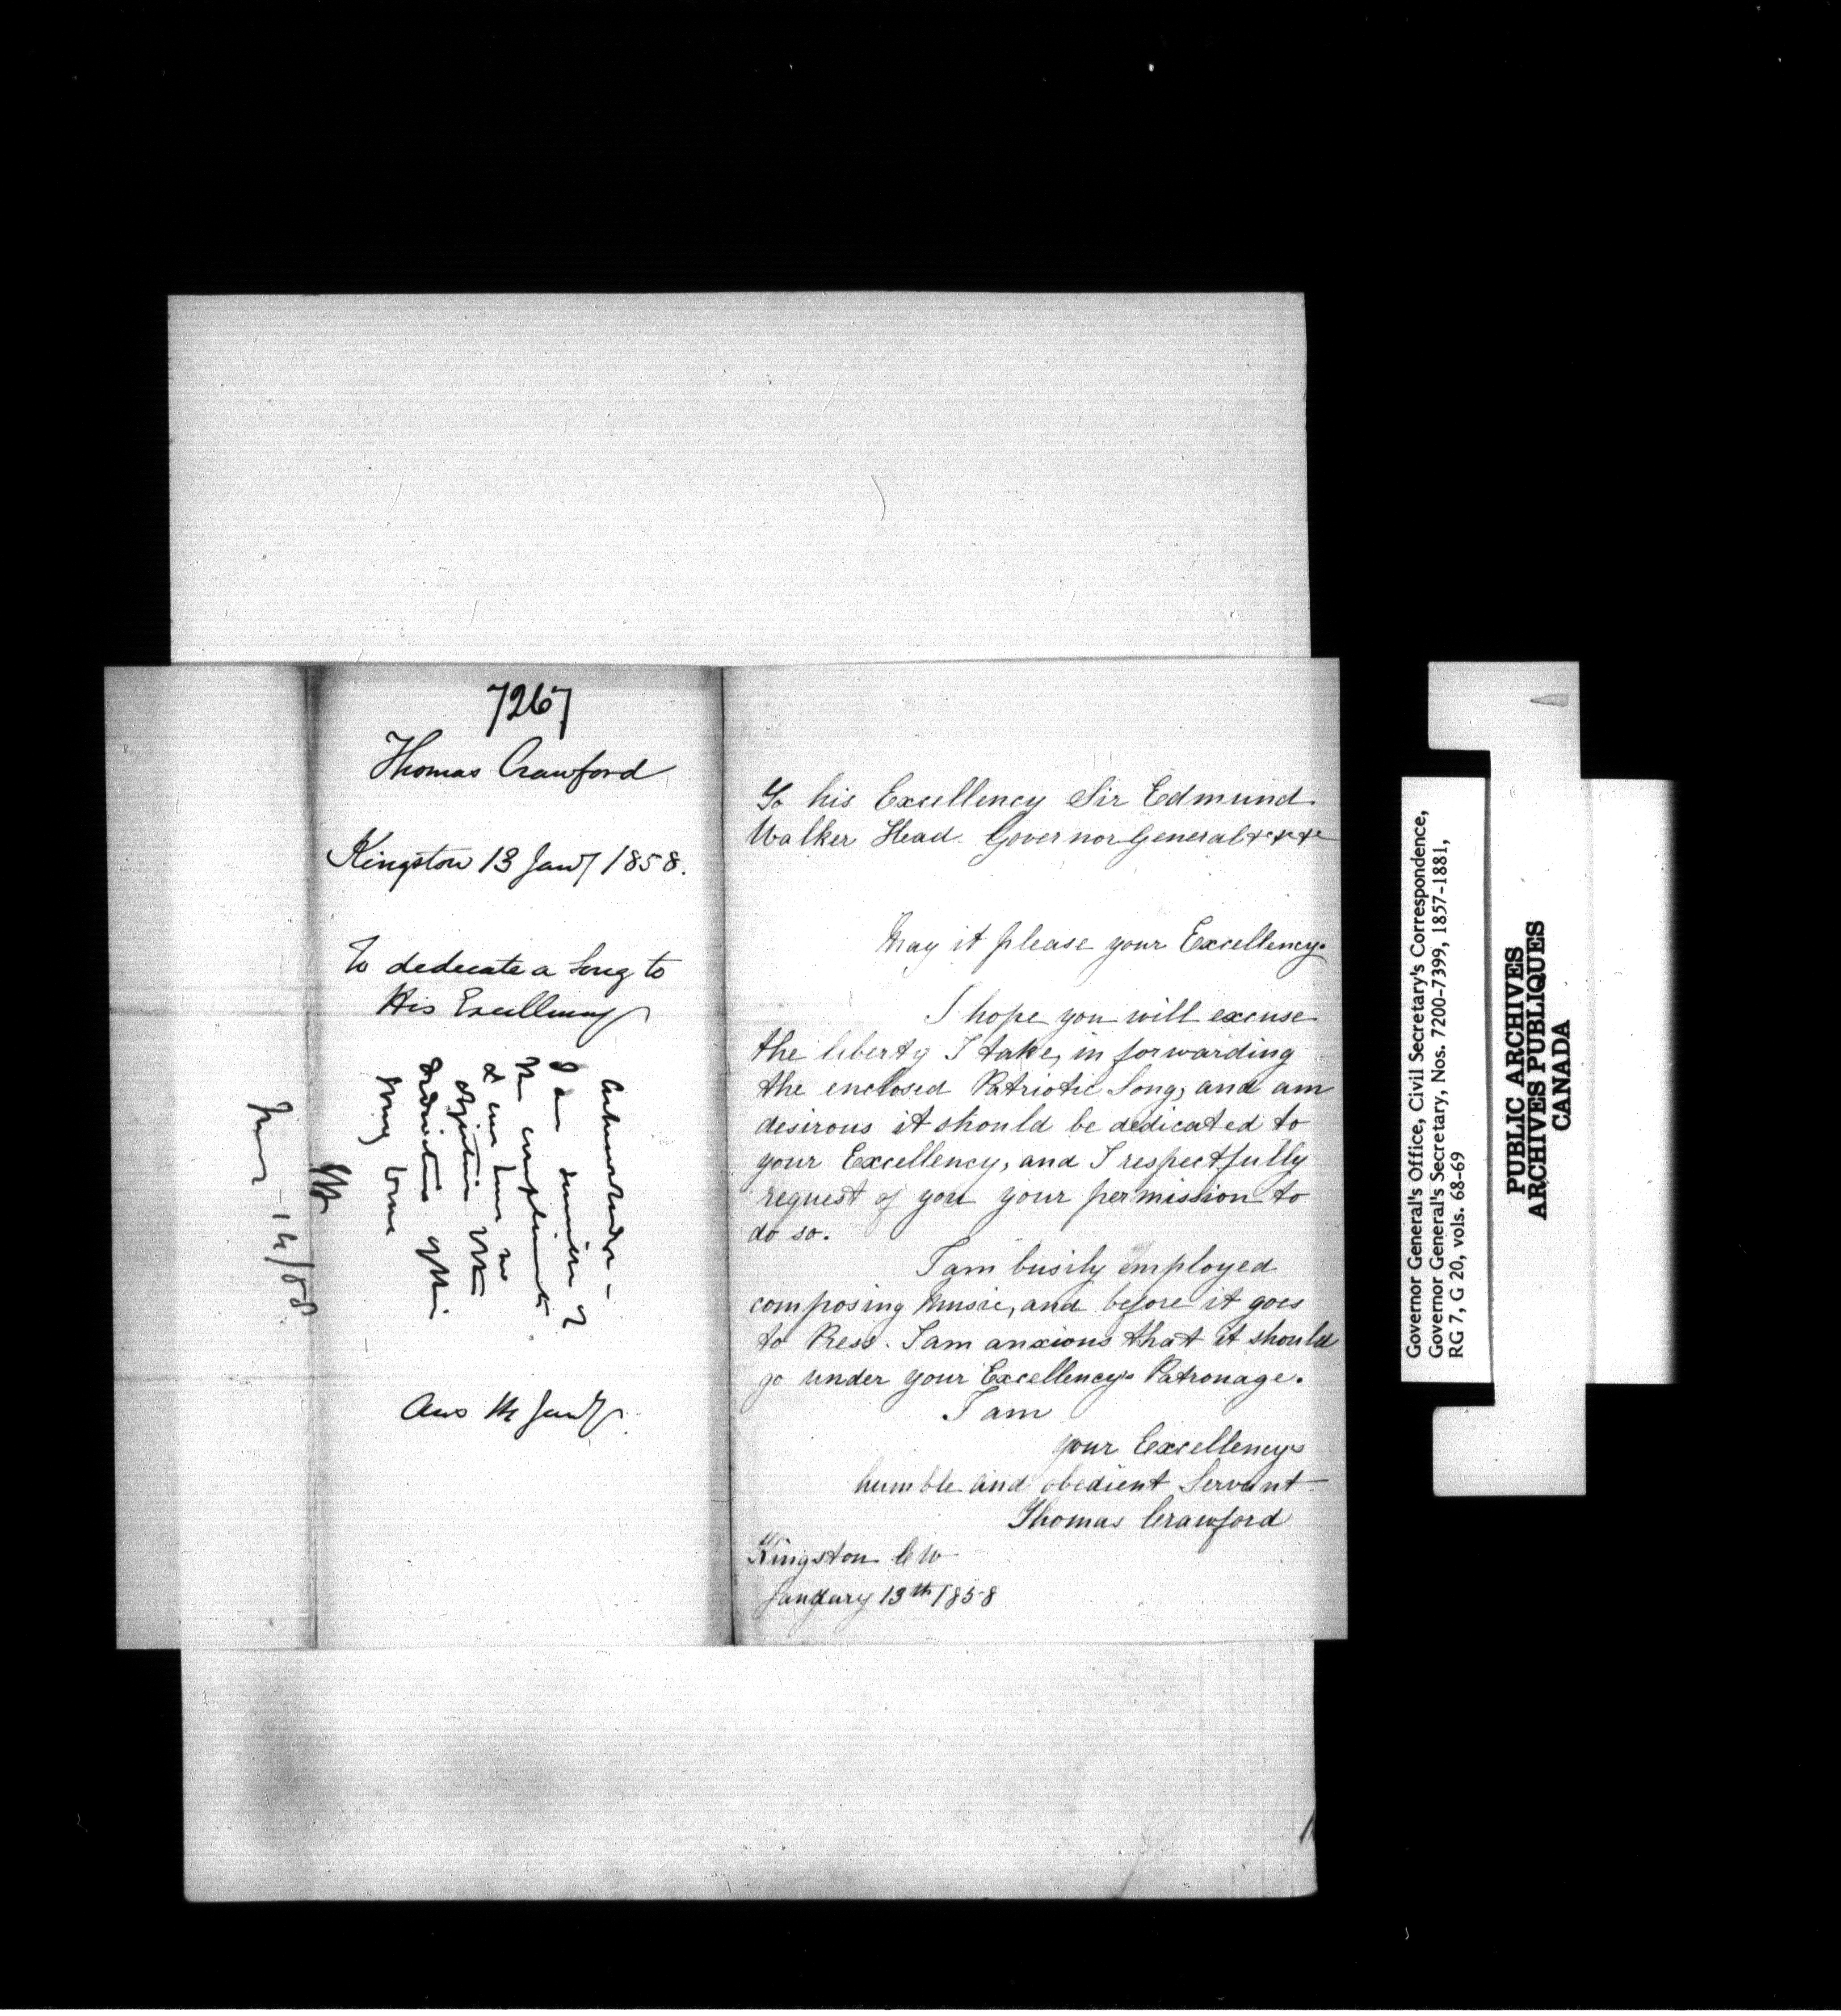 7267
Thomas Crawford
Kingston 13 Jany 1858.
To dedicate a Song to
His Excellency
Acknowledge -
I am sensible of
the compliment
& can have no
objection to the
dedication of the
Song
14/58
Ans Jany
To his Excellency Sir Edmund
Walker Head. Governor General &c &c &c
May it please your Excellency.
I hope you will excuse
the liberty I take, in forwarding
the enclosed Patriotic Song, and am
desirous it should be dedicated to
your Excellency, and I respectfully
request of you your permission to
do so.
I am busily employed
composing Music, and before it goes
to Press. I am anxious that it should
go under your Excellency's Patronage.
I am
your Excellencys
humble and obedient Servant
Thomas Crawford
Kingston C W
January 13th 1858
Governor General's Office, Civil Secretary's Correspondence,
Governor General's Secretary, Nos. 7200-7399, 1857-1881,
RG 7, G 20, vols. 68-69
PUBLIC ARCHIVES
ARCHIVES PUBLIQUES
CANADA